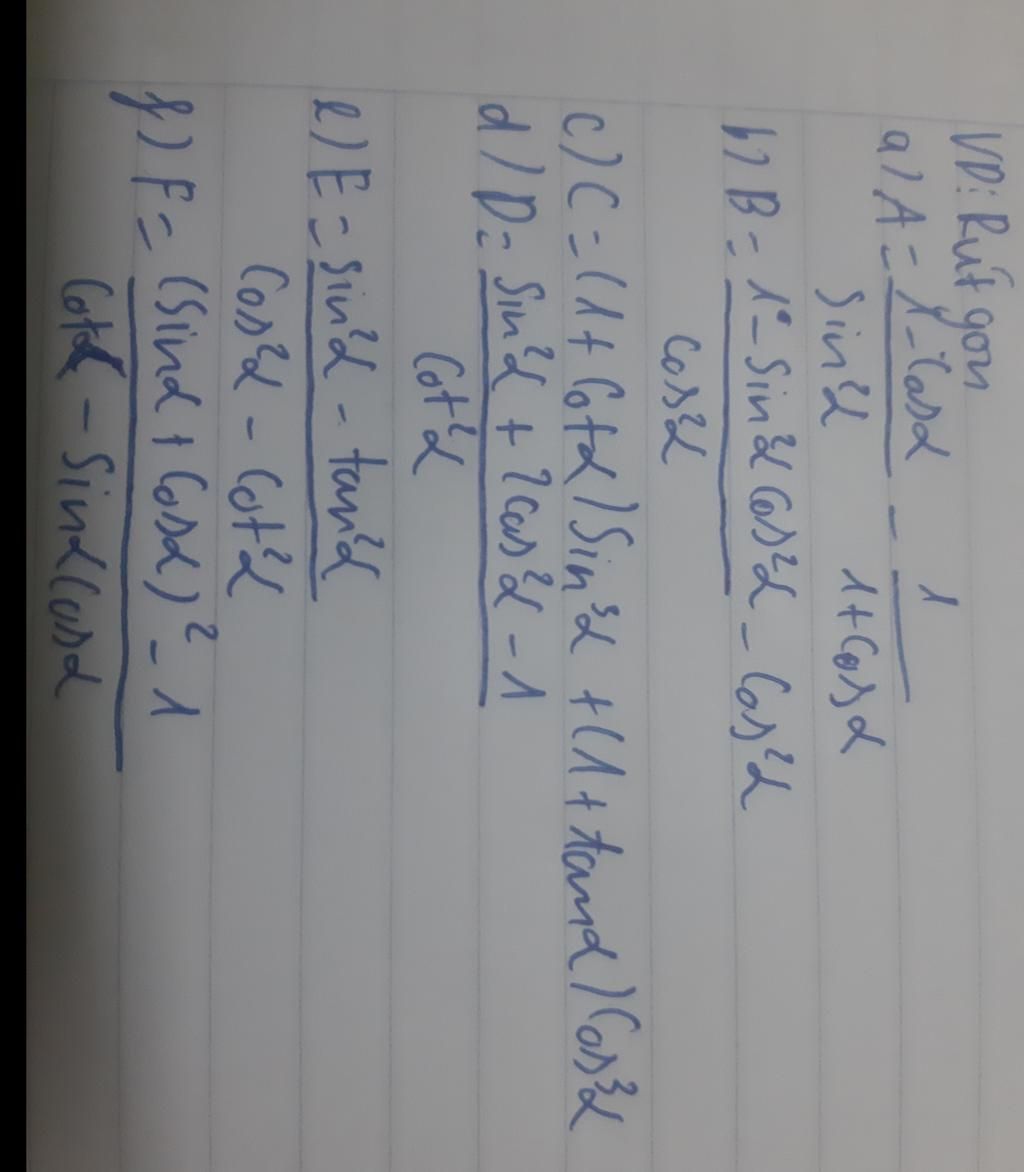 VD: Rút gọn
a) A = 1 - cosα / sin²α - 1 / 1 + cosα
b) B = 1 - sin²α cos²α - cos²α / cos²α
c) C = (1 + cotα) sin³α + (1 + tanα) cos³α
d) D = sin²α + 2cos²α - 1 / cot²α
e) E = sin²α - tan²α / cos²α - cot²α
f) F = (sinα + cosα)² - 1 / cotα - sinα cosα